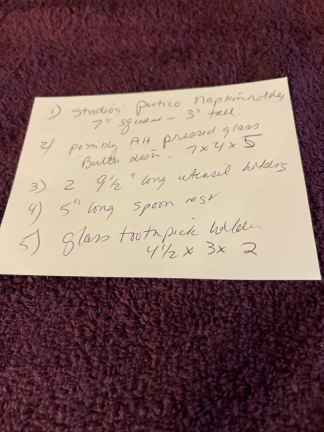 1) Studios portico Napkin holder
7" square - 3" tall.
2) possibly AH pressed glass
Button 7 x 4 x 5
3) 2 9 1/2" long utensil holders
4) 5" long spoon rest
5) glass toothpick holder
4 1/2 x 3 x 2